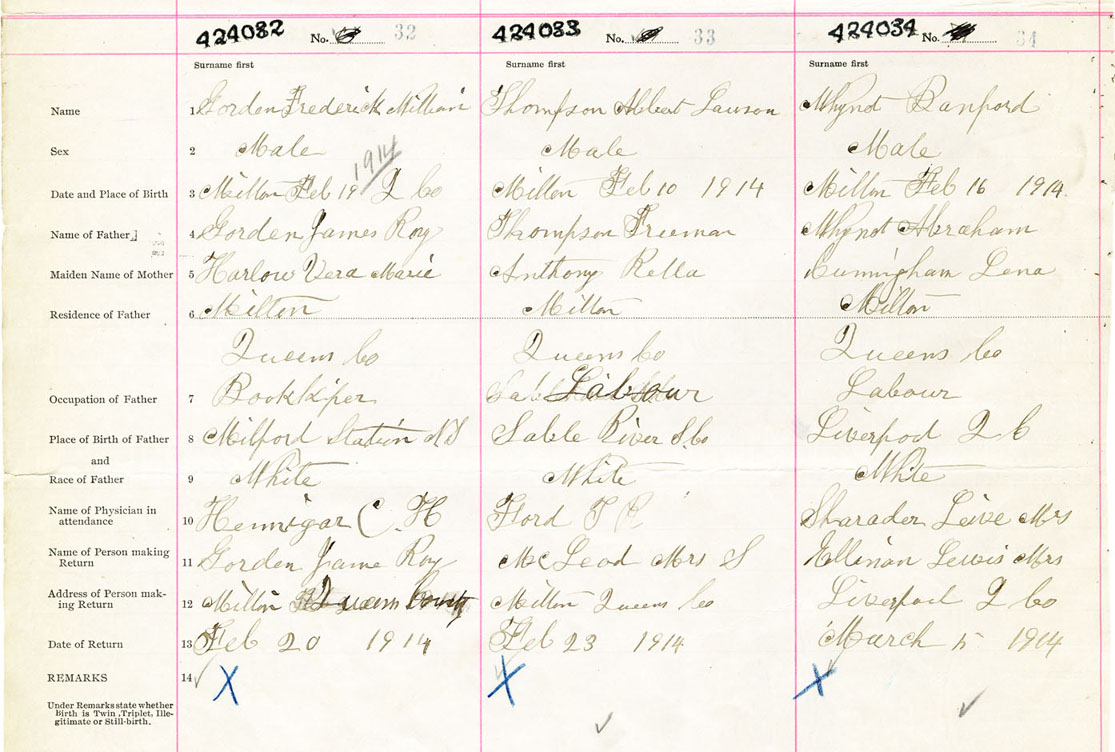 424082 No. 32 424083 No. 33 424034 No. 34
Surname first Surname first Surname first
Name 1 Gorden Frederick Millian Thompson Albert Lawson Whynot Banford
Sex 2 Male Male Male
1914
Date and Place of Birth 3 Milton Feb 19 Q Co Milton Feb 10 1914 Milton Feb 16 1914
Name of Father 4 Gorden James Roy Thompson Freeman Whynot Abraham
Maiden Name of Mother 5 Harlow Vera Marie Anthony Rella Cunningham Lena
Residence of Father 6 Milton Milton Milton
Queens Co Queens Co Queens Co
Occupation of Father 7 Bookkiper Labour Labour
Place of Birth of Father 8 Milford Station NS Sable River S.Co Liverpool Q C
and
Race of Father 9 White White White
Name of Physician in
attendance 10 Hennigar C. H Ford T R Sharader Mrs
Name of Person making
Return 11 Gorden Jame Roy McLeod Mrs S Lewis Mrs
Address of Person mak-
ing Return 12 Milton Queens County Milton Queens Co Liverpool Q Co
Date of Return 13 Feb 20 1914 Feb 23 1914 March 5 1914
REMARKS 14 X X X
Under Remarks state whether
Birth is Twin, Triplet, Ille-
gitimate or Still-birth.